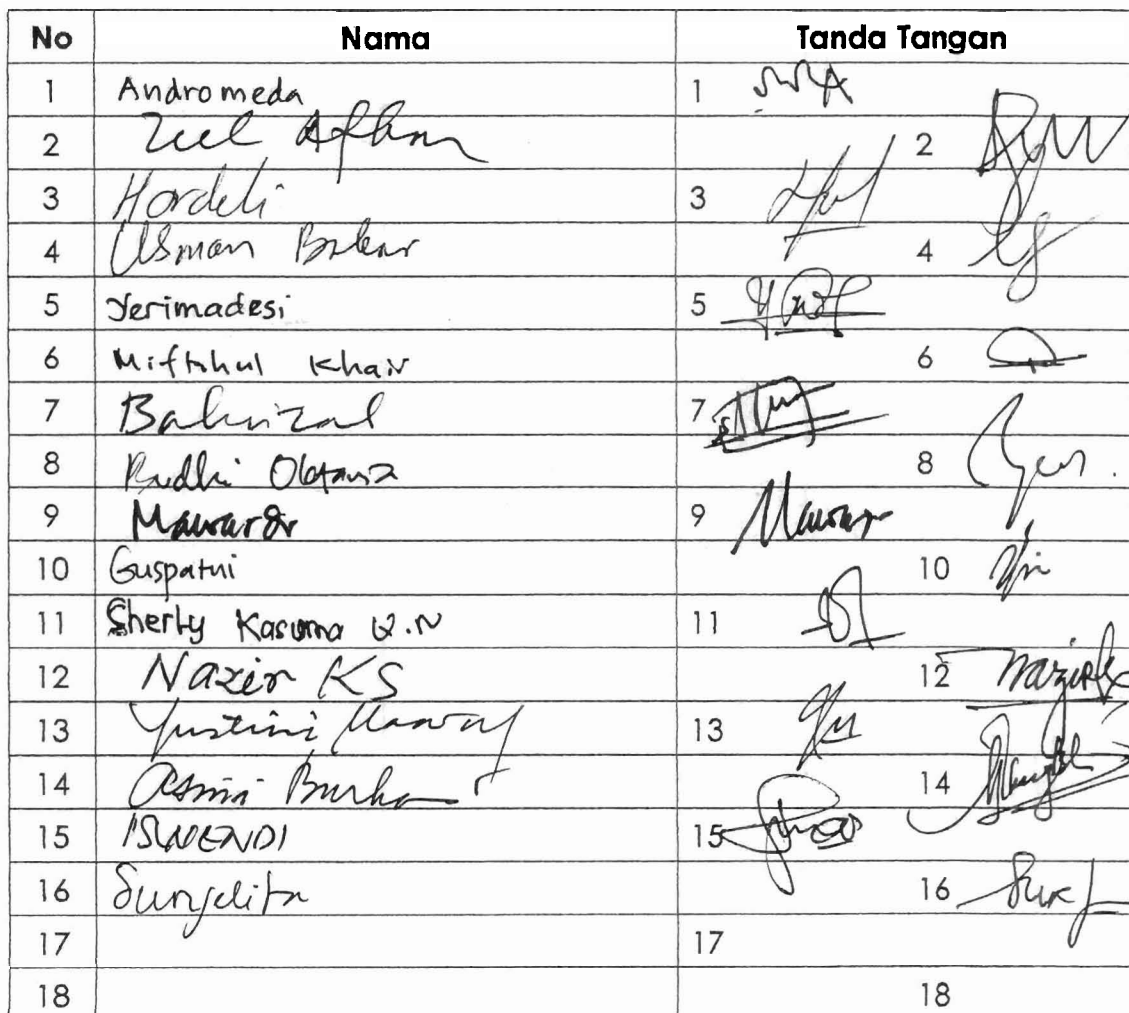 No Nama Tanda Tangan
1 Andromeda 1
2 Zul Afkar 2
3 Hardeli 3
4 Usman Bakar 4
5 Yerimadesi 5
6 Miftahul Khair 6
7 Bahrizal 7
8 Budhi Oktavia 8
9 Mawardi 9 Mawar
10 Guspatni 10
11 Sherly Kasuma W.N 11
12 Nazir KS 12 Nazirks
13 Yustini 13
14 Asmi Burhan 14
15 ISWENDI 15
16 Suryelita 16
17 17
18 18